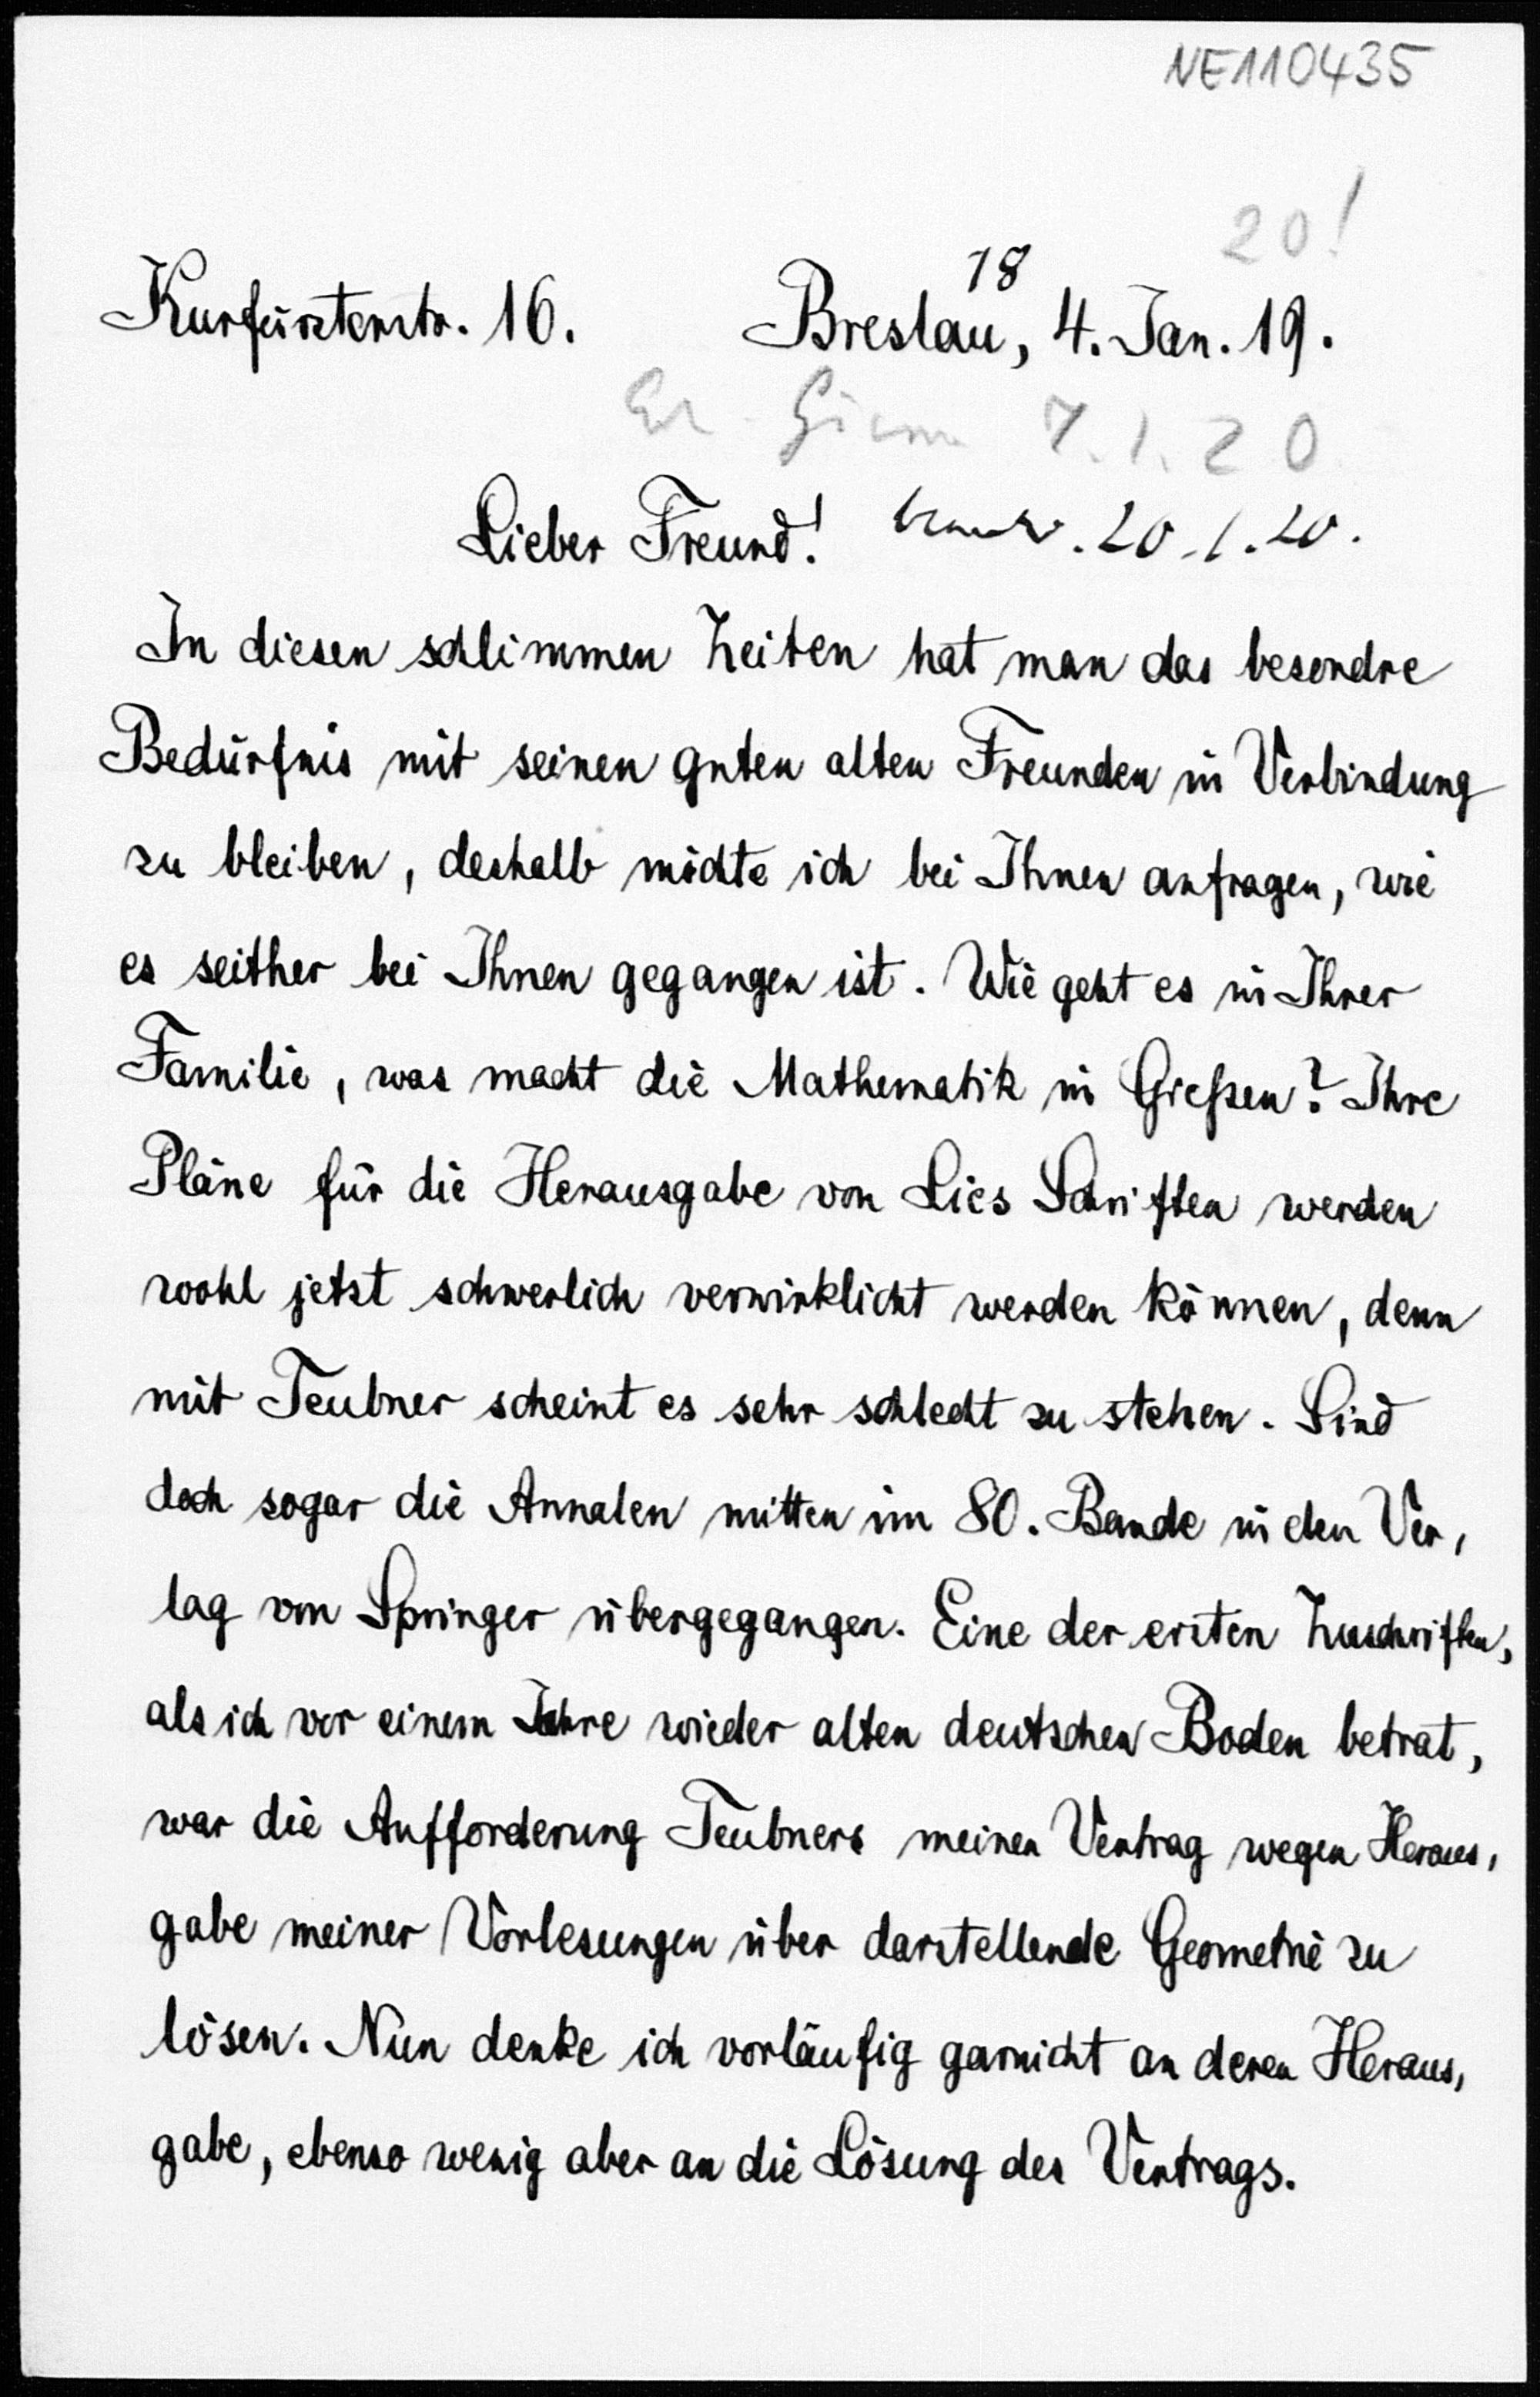 NE110435
20!
18
Kurfürstenstr. 16. Breslau, 4. Jan. 19.
7.1.20
Lieber Freund! 20.1.20.
In diesen schlimmen Zeiten hat man das besondre
Bedürfnis mit seinen guten alten Freunden in Verbindung
zu bleiben, deshalb möchte ich bei Ihnen anfragen, wie
es seither bei Ihnen gegangen ist. Wie geht es in Ihrer
Familie, was macht die Mathematik in Gießen? Ihre
Pläne für die Herausgabe von Lies Schriften werden
wohl jetzt schwerlich verwirklicht werden können, denn
mit Teubner scheint es sehr schlecht zu stehen. Sind
doch sogar die Annalen mitten im 80. Bande in den Ver,
lag von Springer übergegangen. Eine der ersten Zuschriften,
als ich vor einem Jahre wieder alten deutschen Boden betrat,
war die Aufforderung Teubners meinen Vertrag wegen Heraus,
gabe meiner Vorlesungen über darstellende Geometrie zu
lösen. Nun denke ich vorläufig garnicht an deren Heraus,
gabe, ebenso wenig aber an die Lösung des Vertrags.